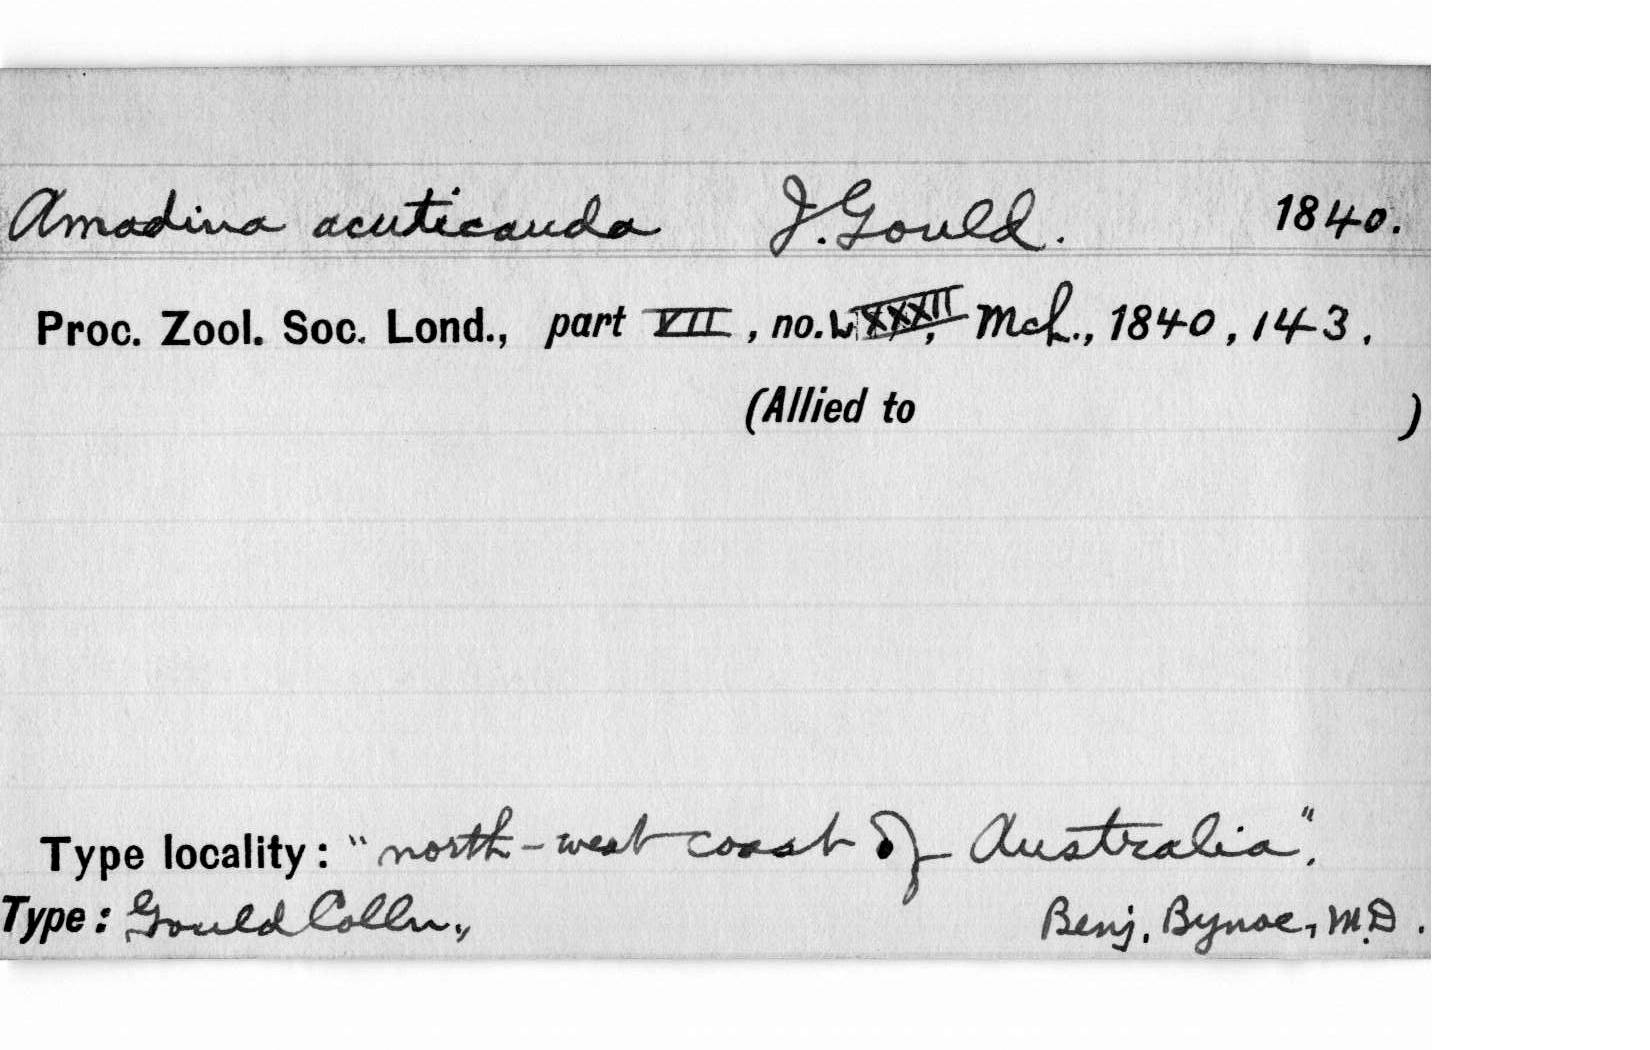 Amadina acuticauda J. Gould. 1840.
Proc. Zool. Soc. Lond., part VII, no. LXXXII, Mch., 1840, 143.
(Allied to )
Type locality: "north-west coast of Australia".
Type: Gould Colln., Benj. Bynoe, M.D.